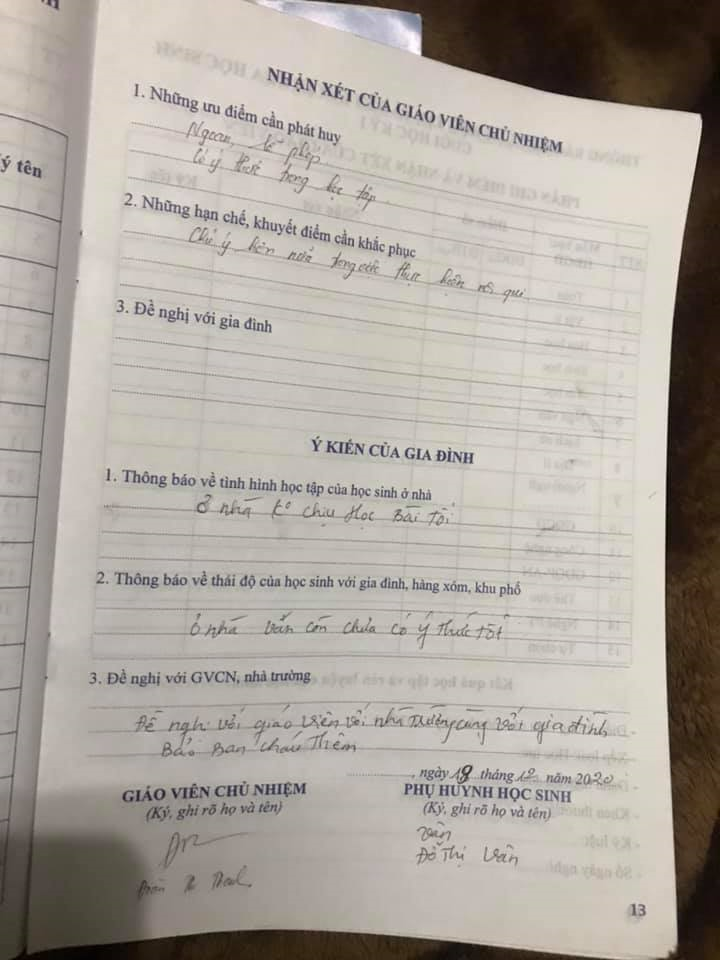 NHẬN XÉT CỦA GIÁO VIÊN CHỦ NHIỆM
1. Những ưu điểm cần phát huy
Ngoan, lễ phép
Có ý thức trong học tập.
2. Những hạn chế, khuyết điểm cần khắc phục
Chú ý hơn nữa trong việc thực hiện nội qui
3. Đề nghị với gia đình
Ý KIẾN CỦA GIA ĐÌNH
1. Thông báo về tình hình học tập của học sinh ở nhà
ở nhà ko chịu Học Bài Tối
2. Thông báo về thái độ của học sinh với gia đình, hàng xóm, khu phố
ở nhà vẫn còn chưa có ý thức tốt
3. Đề nghị với GVCN, nhà trường
Đề nghị với giáo viên với nhà trường cùng với gia đình
Bảo Ban cháu Thêm
, ngày 18 tháng 12 năm 2020
GIÁO VIÊN CHỦ NHIỆM
(Ký, ghi rõ họ và tên)
PHỤ HUYNH HỌC SINH
(Ký, ghi rõ họ và tên)
Vân
Đỗ Thị Vân
13
ý tên